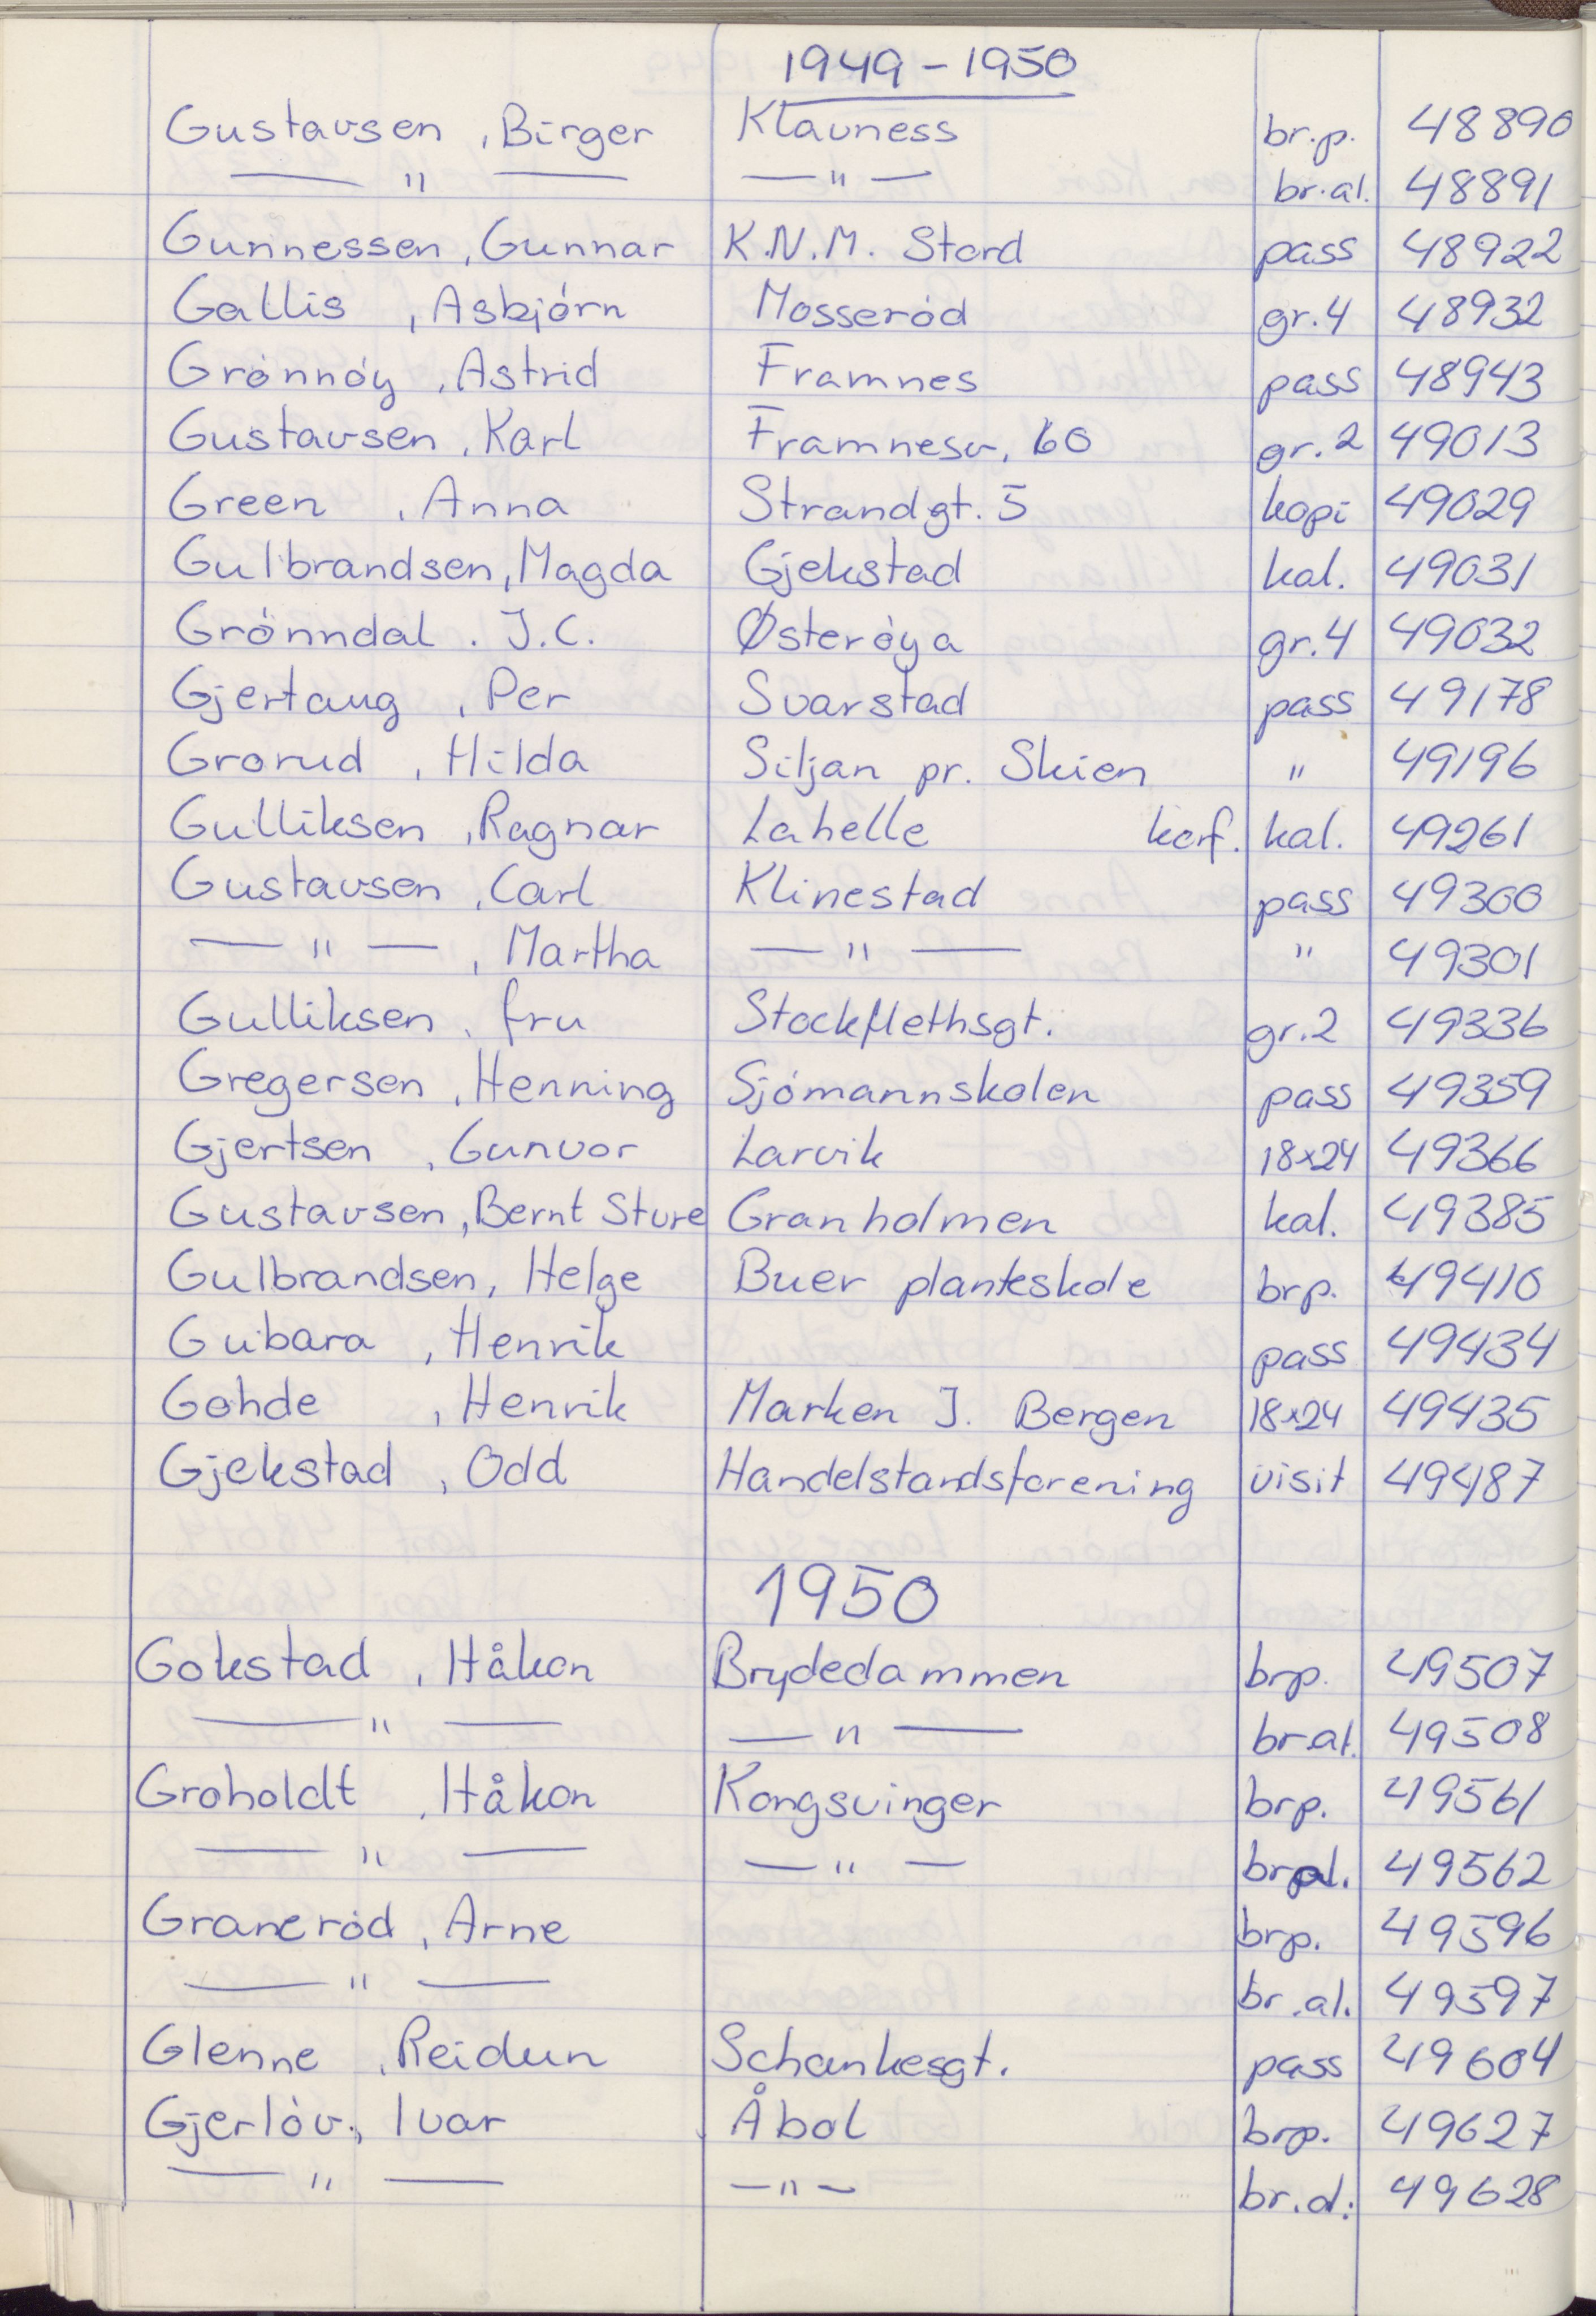 1949-1950
Gustavsen, Birger Klavness br.p. 48890
— " — — " — br.al. 48891
Gunnessen, Gunnar K.N.M. Stord pass 48922
Gallis, Asbjórn Mosseród gr.4 48932
Grónnóy, Astrid Framnes pass 48943
Gustavsen, Karl Framnesv, 60 gr.2 49013
Green, Anna Strandgt. 5 kopi 49029
Gulbrandsen, Magda Gjekstad kal. 49031
Grónndal. J.C. Østeróya gr.4 49032
Gjertaug, Per Svarstad pass 49178
Grorud, Hilda Siljan pr. Skien " 49196
Gulliksen, Ragnar Lahelle korf. kal. 49261
Gustavsen, Carl Klinestad pass 49300
— " —, Martha — " — " 49301
Gulliksen, fru Stockflethsgt. gr.2 49336
Gregersen, Henning Sjómannskolen pass 49359
Gjertsen, Gunvor Larvik 18x24 49366
Gustavsen, Bernt Sture Granholmen kal. 49385
Gulbrandsen, Helge Buer planteskole brp. 49410
Gubara, Henrik pass 49434
Gohde, Henrik Marken J. Bergen 18x24 49435
Gjekstad, Odd Handelstandsforening visit 49487
1950
Gokstad, Håkon Brydedammen brp. 49507
— " — — " — br.al. 49508
Groholdt, Håkon Kongsvinger brp. 49561
— " — — " — br.al. 49562
Graneród, Arne brp. 49596
— " — br.al. 49597
Glenne, Reidun Schankesgt. pass 49604
Gjerlóv., Ivar Åbol brp. 49627
— " — — " — br.al. 49628